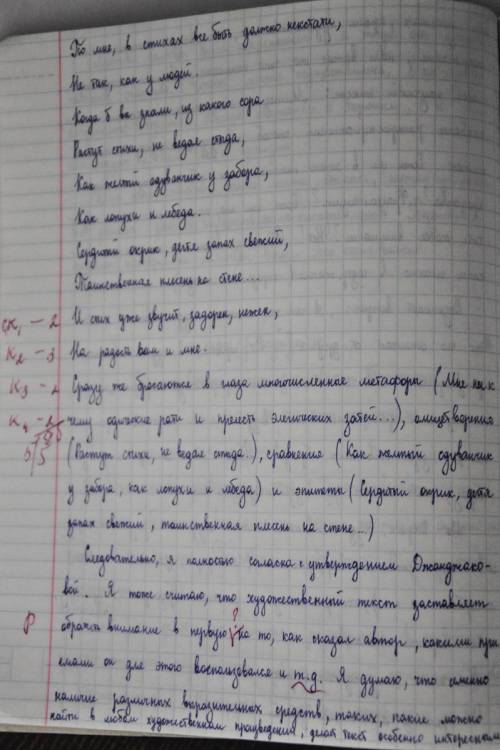 По мне, в стихах все быть должно некстати,
Не так, как у людей.
Когда б вы знали, из какого сора
Растут стихи, не ведая стыда,
Как желтый одуванчик у забора,
Как лопухи и лебеда.
Сердитый окрик, дегтя запах свежий,
Таинственная плесень на стене...
И стих уже звучит, задорен, нежен,
На радость вам и мне.
Сразу же бросаются в глаза многочисленные метафоры (Мне ни к
чему одические рати и прелесть элегических затей...), олицетворения
(Растут стихи, не ведая стыда.), сравнения (Как желтый одуванчик
у забора, как лопухи и лебеда) и эпитеты (Сердитый окрик, дегтя
запах свежий, таинственная плесень на стене...)
Следовательно, я полностью согласна с утверждением Джанджако-
вой. Я тоже считаю, что художественный текст заставляет
Р обратить внимание в первую ? на то, как сказал автор, какими при
емами он для этого воспользовался и т.д. Я думаю, что именно
наличие различных выразительных средств, таких, какие можно
найти в любом художественном произведении, делает текст особенно интересным
К2 - 3
К3 - 2